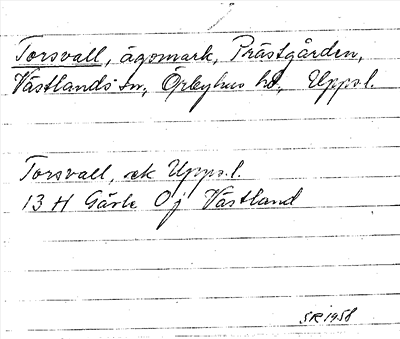 Torsvall, ägomark, Prästgården,
Västlands sn, Örbyhus hd, Uppsl.
Torsvall, ek Upps.l.
13 H Gävle Oj Västland
SR 1958